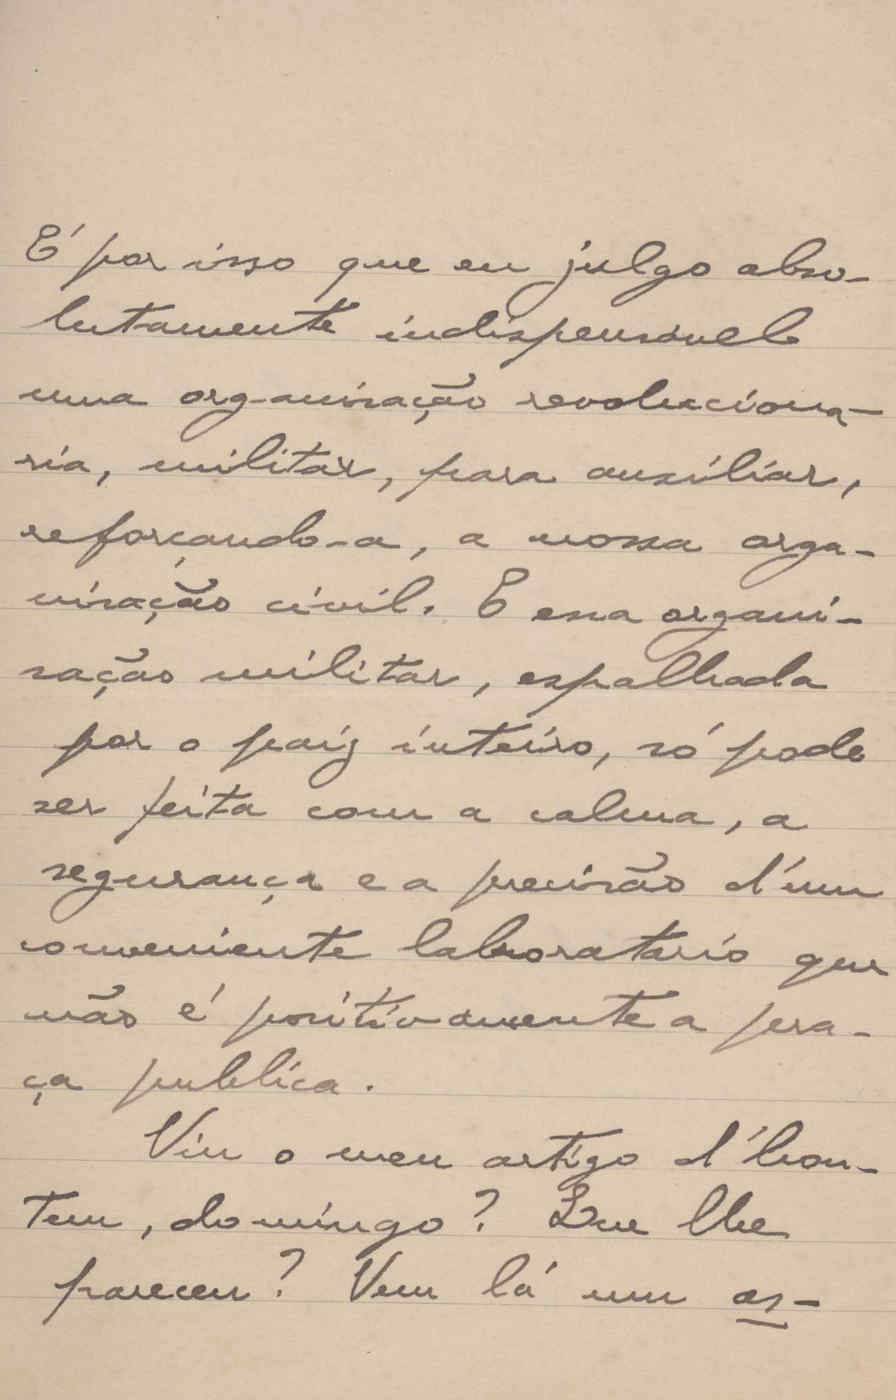 É por isso que eu julgo abso-
lutamente indispensavel
uma organisação revoluciona-
ria, militar, para auxiliar,
reforçando-a, a nossa orga-
nisação civil. E essa organi-
sação militar, espalhada
por o paiz inteiro, só pode
ser feita com a calma, a
segurança e a precisão d'um
conveniente laboratorio que
não é positivamente a pra-
ça publica.
Viu o meu artigo d'hon-
tem, domingo? Que lhe
pareceu? Vem lá um as-